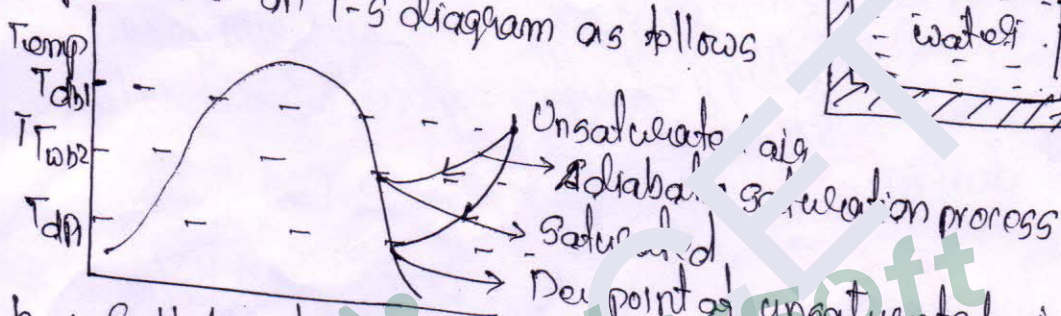 on T-S diagram as follows
Temp
Tdb1
TTwb2
Tdp
water
Unsaturated air
Adiabatic saturation process
Saturated
Dew point of unsaturated